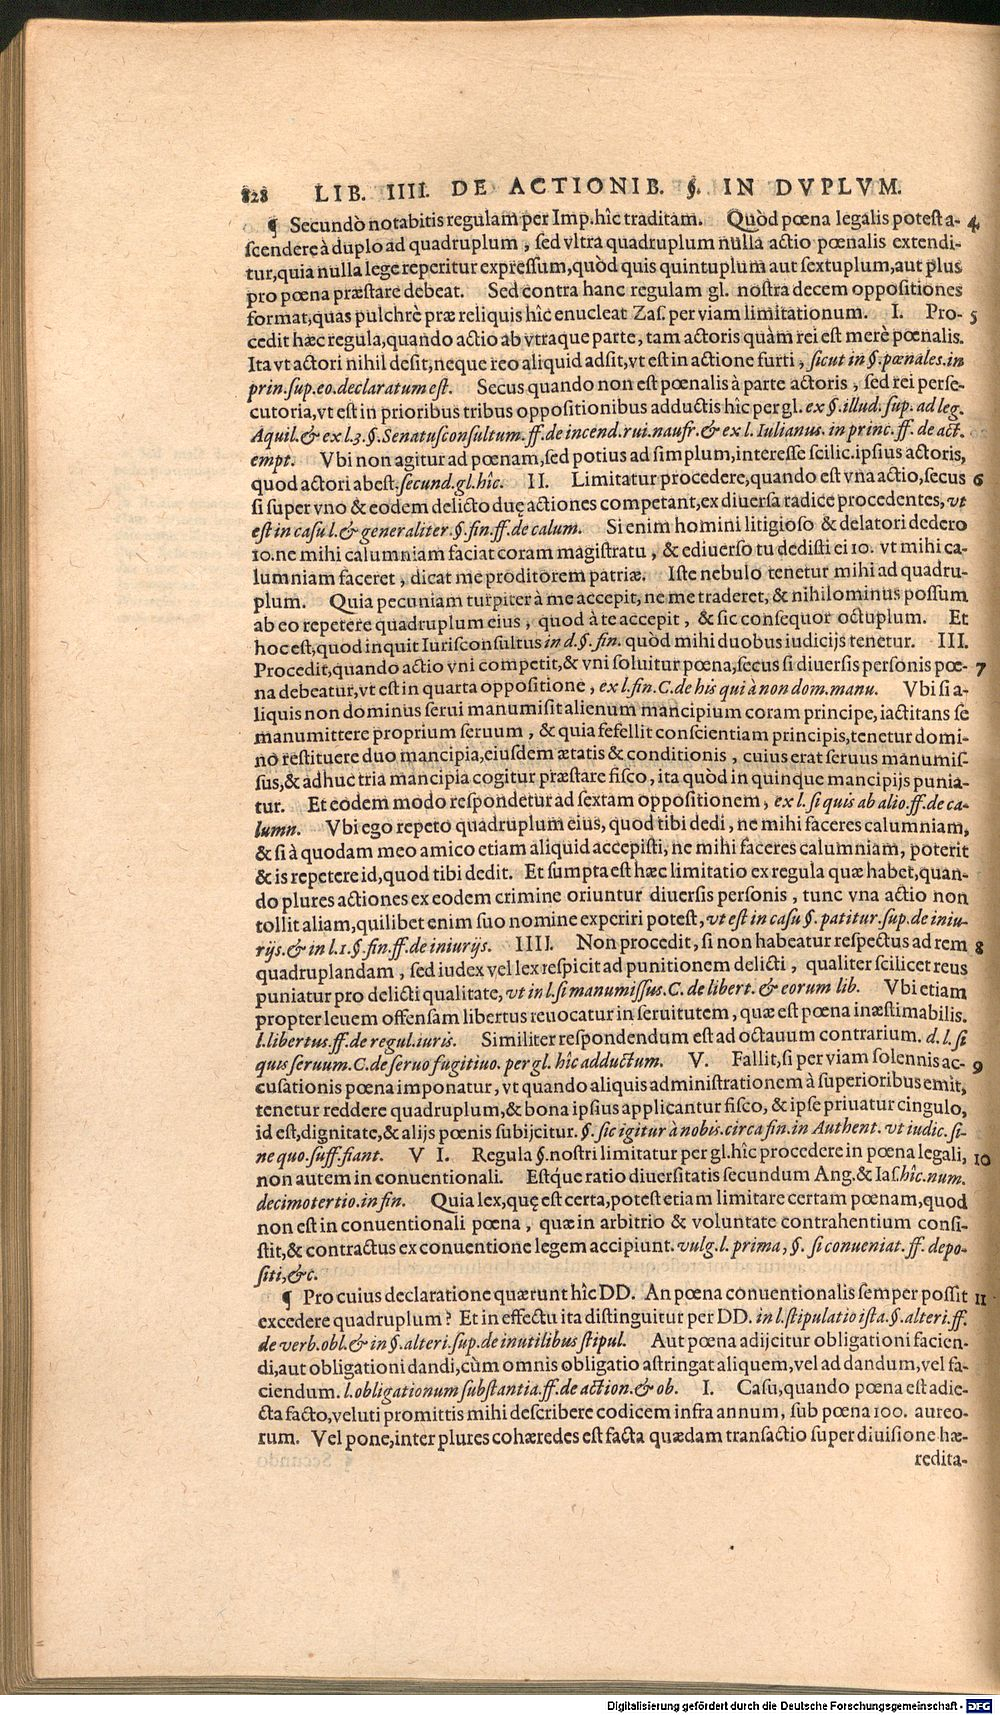 828 LIB. IIII. DE ACTIONIB. §. IN DVPLVM.
¶ Secundò notabitis regulam per Imp. hîc traditam. Quòd pœna legalis potest a- 4
scendere à duplo ad quadruplum, sed vltra quadruplum nulla actio pœnalis extendi-
tur, quia nulla lege reperitur expressum, quòd quis quintuplum aut sextuplum, aut plus
pro pœna præstare debeat. Sed contra hanc regulam gl. nostra decem oppositiones
format, quas pulchrè præ reliquis hîc enucleat Zas. per viam limitationum. I. Pro- 5
cedit hæc regula, quando actio ab vtraque parte, tam actoris quàm rei est merè pœnalis.
Ita vt actori nihil desit, neque reo aliquid adsit, vt est in actione furti, sicut in §. pœnales. in
prin. sup. eo. declaratum est. Secus quando non est pœnalis à parte actoris, sed rei perse-
cutoria, vt est in prioribus tribus oppositionibus adductis hîc per gl. ex §. illud. sup. ad leg.
Aquil. & ex l. 3. §. Senatusconsultum. ff. de incend. rui. naufr. & ex l. Iulianus. in princ. ff. de act.
empt. Vbi non agitur ad pœnam, sed potius ad simplum, interesse scilic. ipsius actoris,
quod actori abest. secund. gl. hîc. II. Limitatur procedere, quando est vna actio, secus 6
si super vno & eodem delicto duę actiones competant, ex diuersa radice procedentes, vt
est in casu l. & generaliter. §. fin. ff. de calum. Si enim homini litigioso & delatori dedero
10. ne mihi calumniam faciat coram magistratu, & ediuerso tu dedisti ei 10. vt mihi ca-
lumniam faceret, dicat me proditorem patriæ. Iste nebulo tenetur mihi ad quadru-
plum. Quia pecuniam turpiter à me accepit, ne me traderet, & nihilominus possum
ab eo repetere quadruplum eius, quod à te accepit, & sic consequor octuplum. Et
hoc est, quod inquit Iurisconsultus in d. §. fin. quòd mihi duobus iudicijs tenetur. III.
Procedit, quando actio vni competit, & vni soluitur pœna, secus si diuersis personis pœ- 7
na debeatur, vt est in quarta oppositione, ex l. fin. C. de his qui à non dom. manu. Vbi si a-
liquis non dominus serui manumisit alienum mancipium coram principe, iactitans se
manumittere proprium seruum, & quia fefellit conscientiam principis, tenetur domi-
no restituere duo mancipia, eiusdem ætatis & conditionis, cuius erat seruus manumis-
sus, & adhuc tria mancipia cogitur præstare fisco, ita quòd in quinque mancipijs punia-
tur. Et eodem modo respondetur ad sextam oppositionem, ex l. si quis ab alio. ff. de ca-
lumn. Vbi ego repeto quadruplum eius, quod tibi dedi, ne mihi faceres calumniam,
& si à quodam meo amico etiam aliquid accepisti, ne mihi faceres calumniam, poterit
& is repetere id, quod tibi dedit. Et sumpta est hæc limitatio ex regula quæ habet, quan-
do plures actiones ex eodem crimine oriuntur diuersis personis, tunc vna actio non
tollit aliam, quilibet enim suo nomine experiri potest, vt est in casu §. patitur. sup. de iniu-
rijs. & in l. 1. §. fin. ff. de iniurijs. IIII. Non procedit, si non habeatur respectus ad rem 8
quadruplandam, sed iudex vel lex respicit ad punitionem delicti, qualiter scilicet reus
puniatur pro delicti qualitate, vt in l. si manumissus. C. de libert. & eorum lib. Vbi etiam
propter leuem offensam libertus reuocatur in seruitutem, quæ est pœna inæstimabilis.
l. libertus. ff. de regul. iuris. Similiter respondendum est ad octauum contrarium. d. l. si
quis seruum. C. de seruo fugitiuo. per gl. hîc adductum. V. Fallit, si per viam solennis ac- 9
cusationis pœna imponatur, vt quando aliquis administrationem à superioribus emit,
tenetur reddere quadruplum, & bona ipsius applicantur fisco, & ipse priuatur cingulo,
id est, dignitate, & alijs pœnis subijcitur. §. sic igitur à nobis. circa fin. in Authent. vt iudic. si-
ne quo. suff. fiant. V I. Regula §. nostri limitatur per gl. hîc procedere in pœna legali, 10
non autem in conuentionali. Estq́ue ratio diuersitatis secundum Ang. & Ias. hîc. num.
decimotertio. in fin. Quia lex, quę est certa, potest etiam limitare certam pœnam, quod
non est in conuentionali pœna, quæ in arbitrio & voluntate contrahentium consi-
stit, & contractus ex conuentione legem accipiunt. vulg. l. prima, §. si conueniat. ff. depo-
siti, &c.
¶ Pro cuius declaratione quærunt hîc DD. An pœna conuentionalis semper possit 11
excedere quadruplum? Et in effectu ita distinguitur per DD. in l. stipulatio ista. §. alteri. ff.
de verb. obl. & in §. alteri. sup. de inutilibus stipul. Aut pœna adijcitur obligationi facien-
di, aut obligationi dandi, cùm omnis obligatio astringat aliquem, vel ad dandum, vel fa-
ciendum. l. obligationum substantia. ff. de action. & ob. I. Casu, quando pœna est adie-
cta facto, veluti promittis mihi describere codicem infra annum, sub pœna 100. aureo-
rum. Vel pone, inter plures cohæredes est facta quædam transactio super diuisione hæ-
redita-
Digitalisierung gefördert durch die Deutsche Forschungsgemeinschaft - DFG